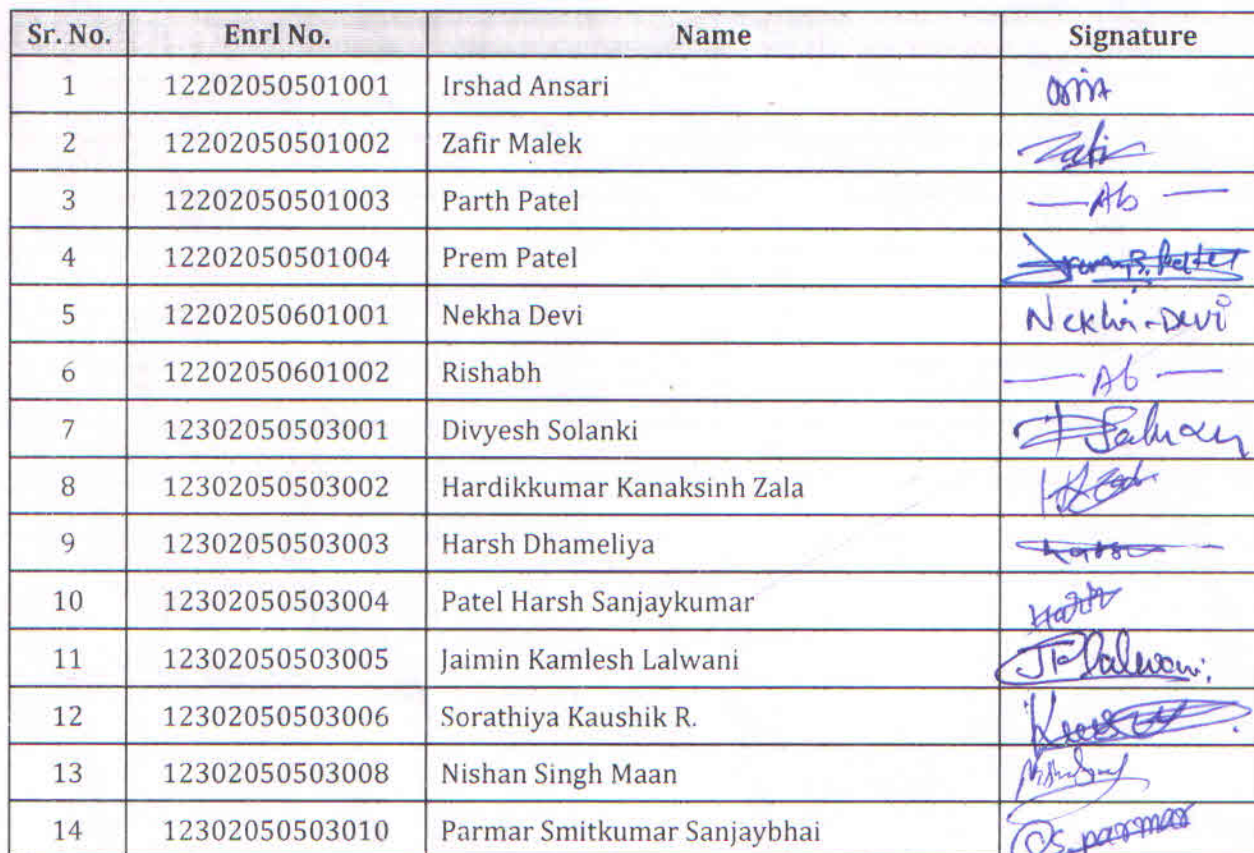 Sr. No. Enrl No. Name Signature
1 12202050501001 Irshad Ansari
2 12202050501002 Zafir Malek Zafir
3 12202050501003 Parth Patel — Ab —
4 12202050501004 Prem Patel Prem B. Patel
5 12202050601001 Nekha Devi Nekha-Devi
6 12202050601002 Rishabh — Ab —
7 12302050503001 Divyesh Solanki
8 12302050503002 Hardikkumar Kanaksinh Zala
9 12302050503003 Harsh Dhameliya Harsh
10 12302050503004 Patel Harsh Sanjaykumar
11 12302050503005 Jaimin Kamlesh Lalwani JKLalwani.
12 12302050503006 Sorathiya Kaushik R.
13 12302050503008 Nishan Singh Maan
14 12302050503010 Parmar Smitkumar Sanjaybhai S. parmar